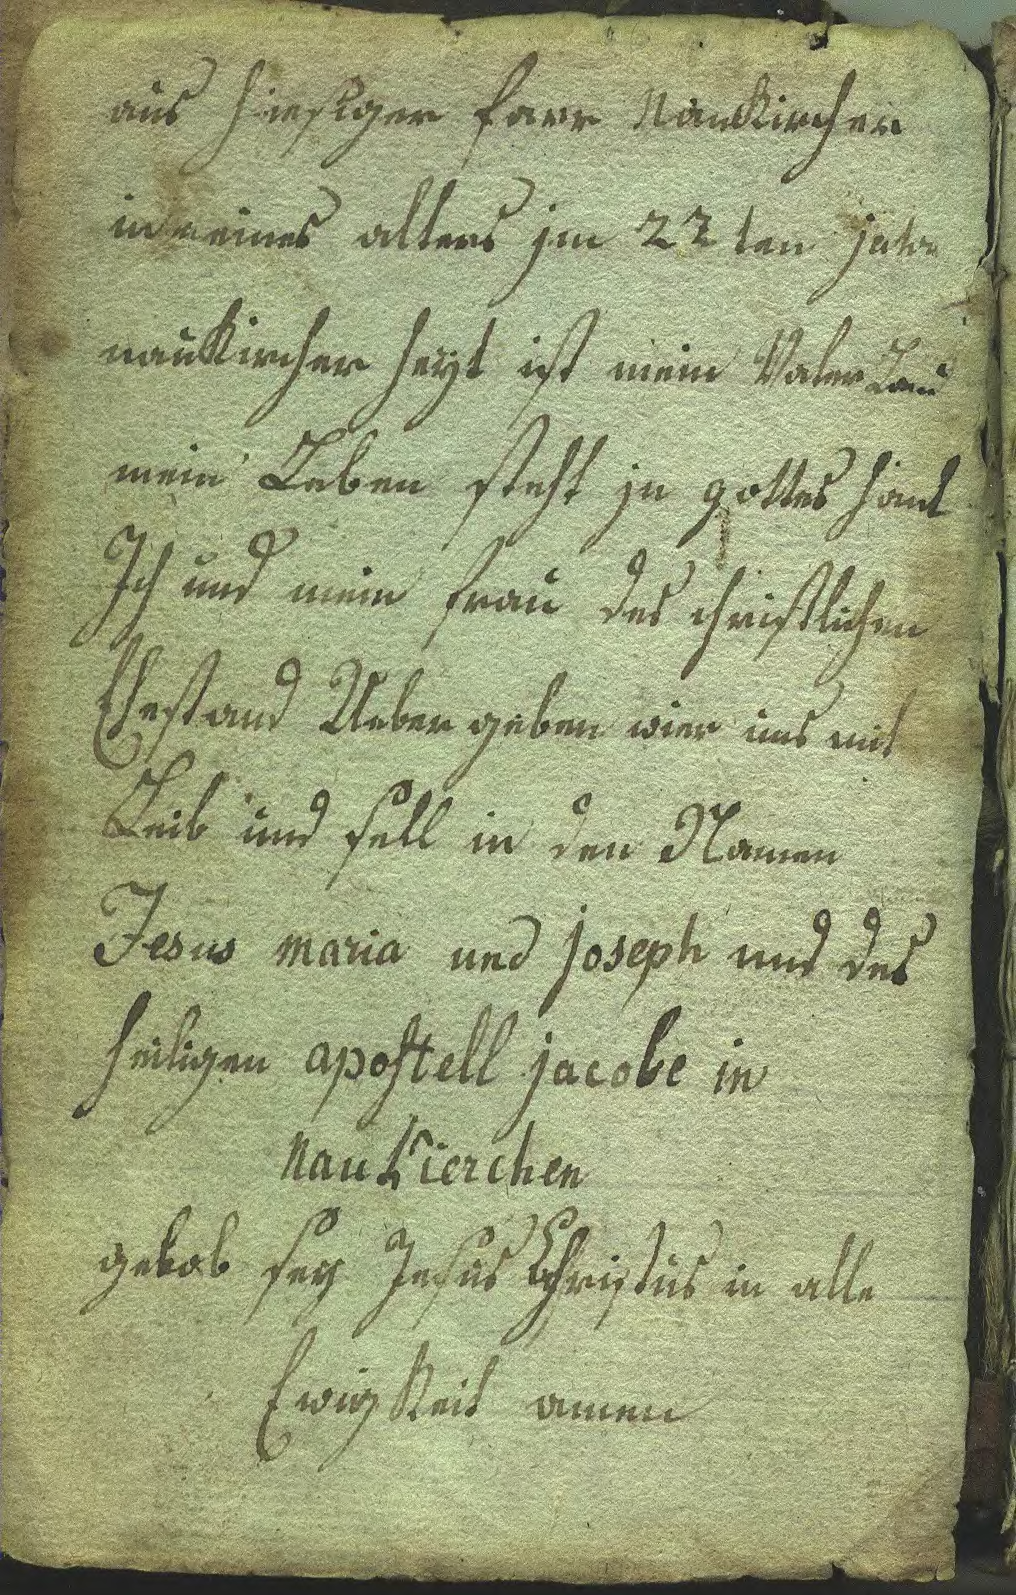 aus hiesiger farr Naukirchen
in meines alters jm 22 ten jahr
naukircher heyt ist mein Vater Lan
mein Leben steht jn gottes hant
Ich und mein frau des christlichen
Ehestand Ueber geben wier uns mit
Leib und sell in den Namen
Jesus maria und joseph und des
heiligen apostell jacobe in
Naukierchen
gelob sey Jesus Christus in alle
Ewigkeit amen